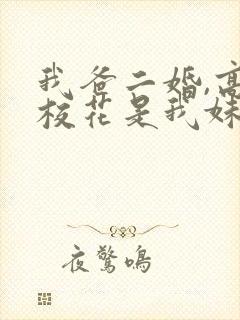 我爸二婚,高
校花是我妹
夜惊鸣